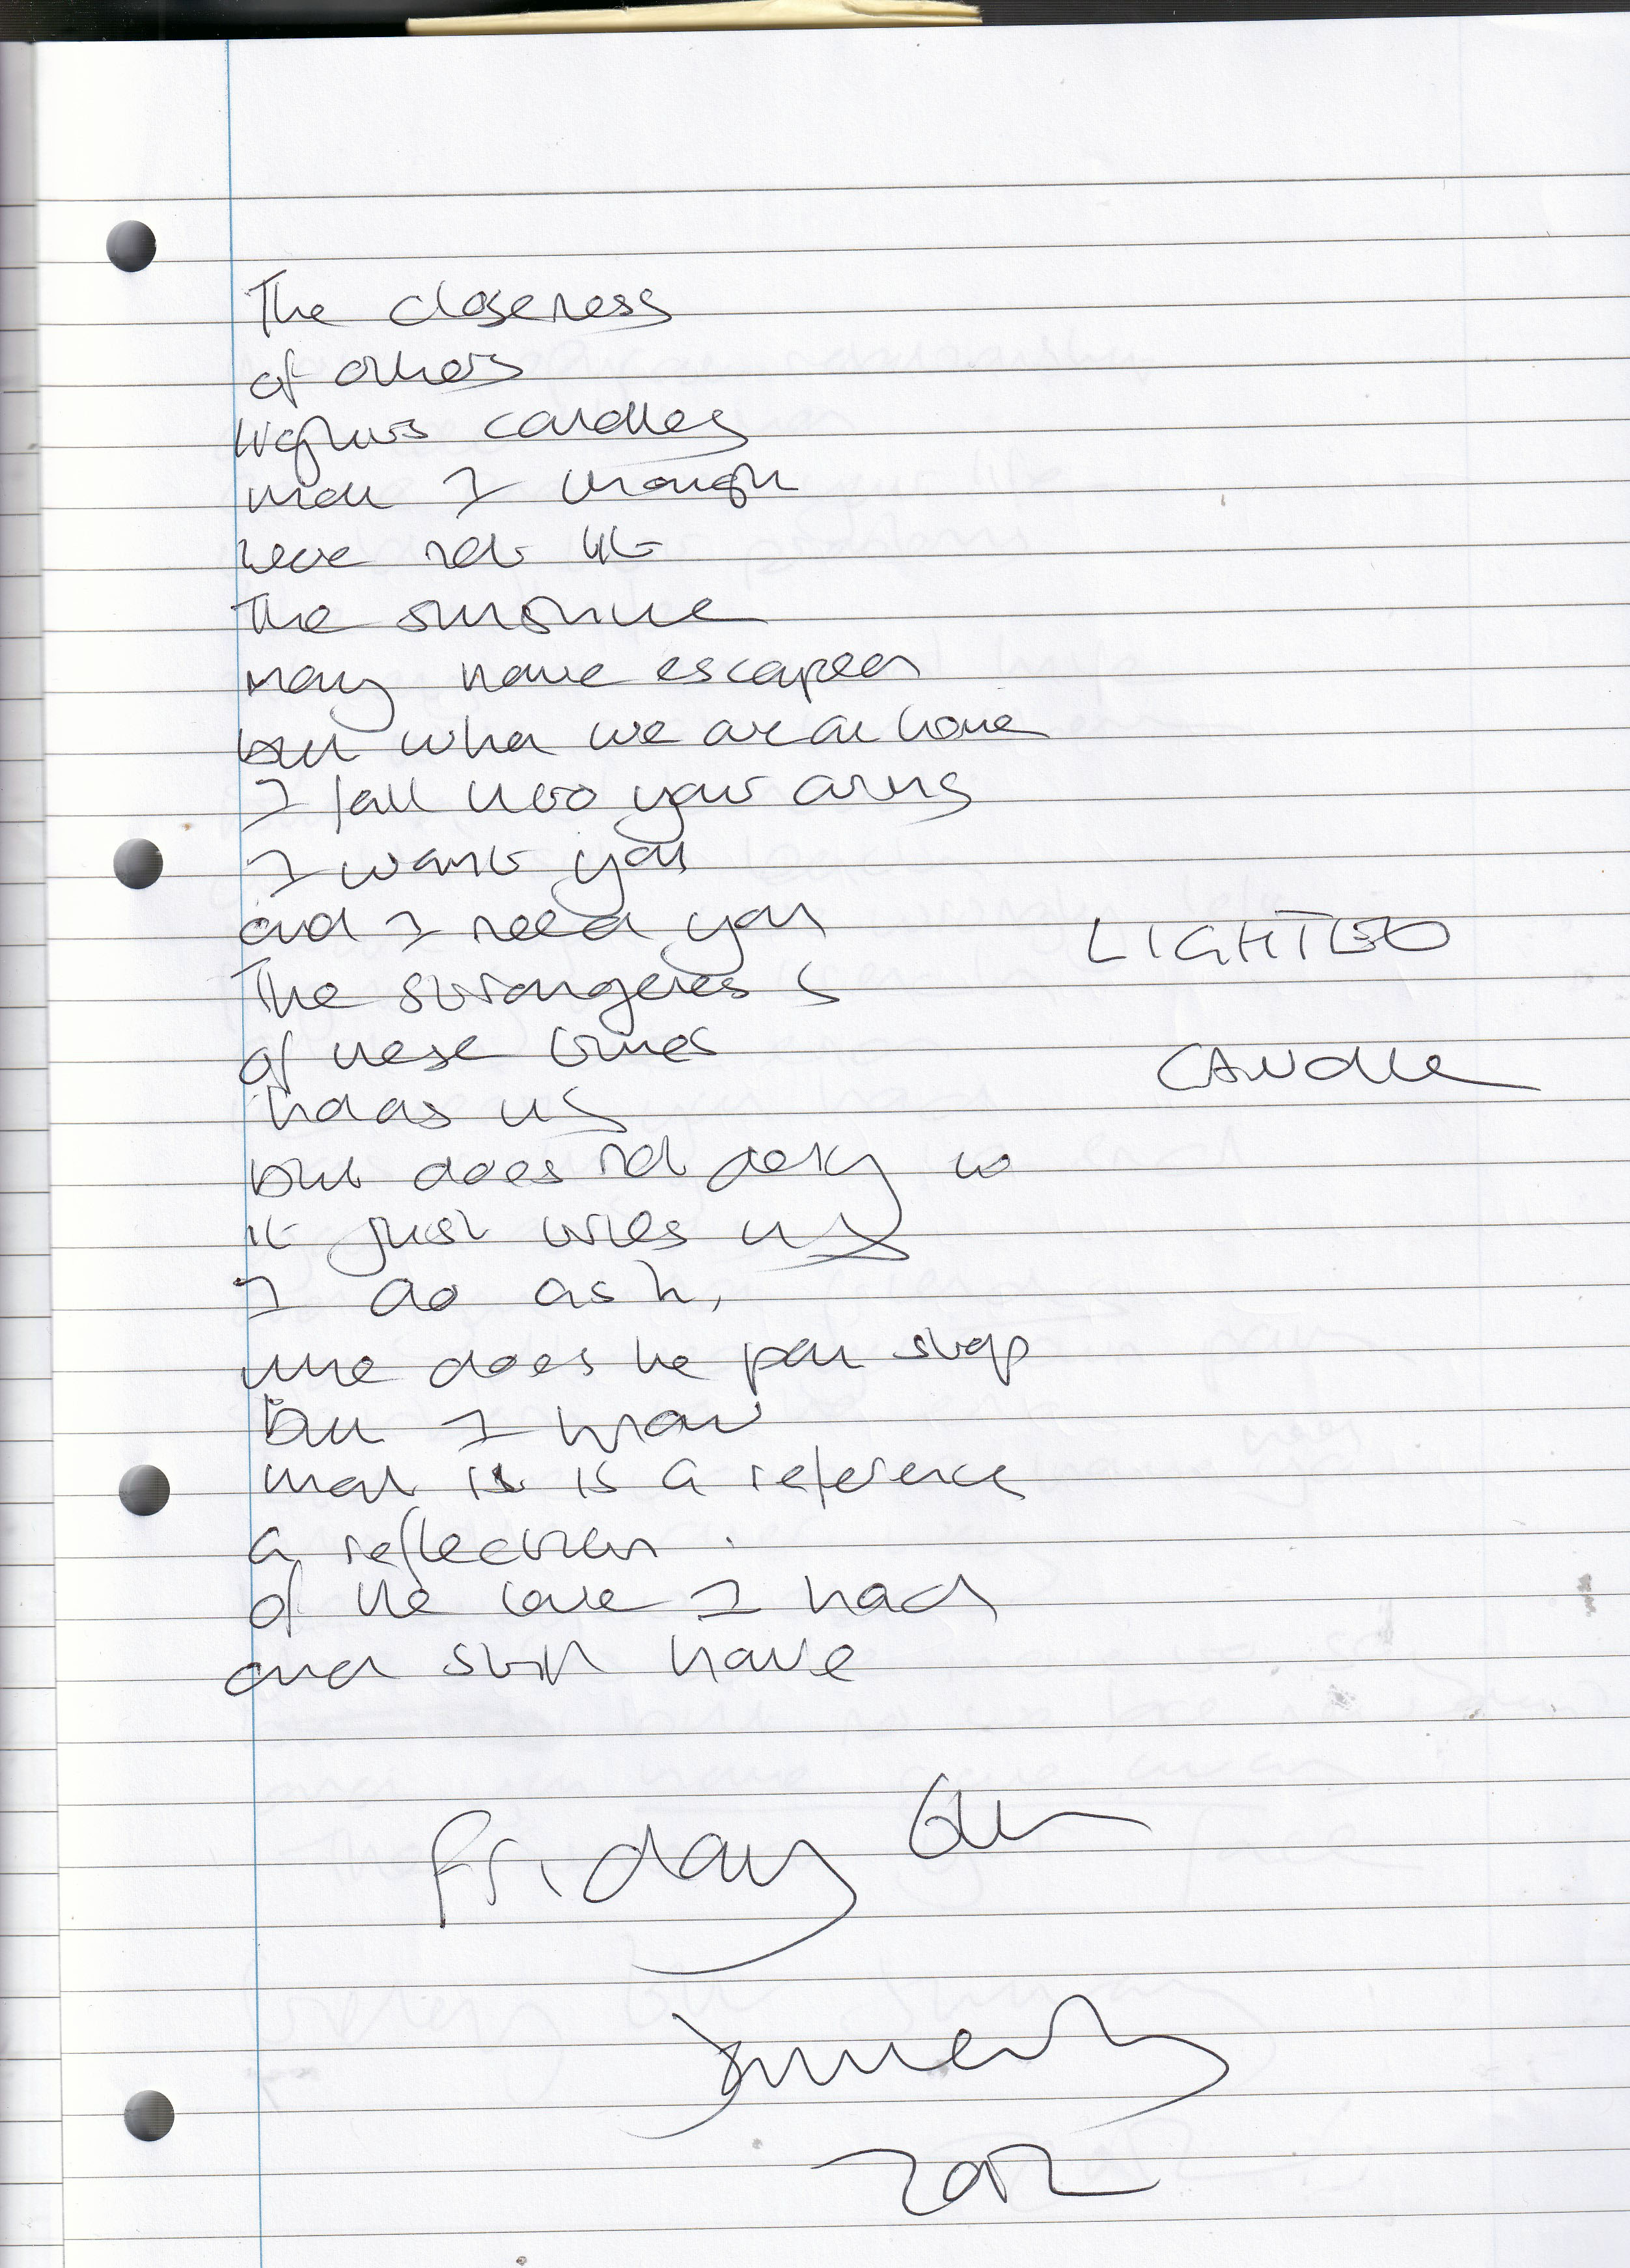 The closeness
of others
lights candles
that I though
were not lit
The sunshine
may have escaped
but when we are at home
I fall into your arms
I want you
and I need you
The strangeness
of these times
holds us
but does not deny us
it just tries us
I do ask,
when does the pain stop
but I know
that it is a reference
a reflection
of the love I had
and still have
LIGHTED
CANDLE
Friday 6th
January
2012